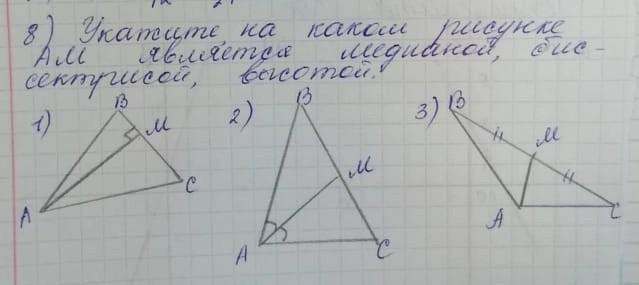 8) Укажите, на каком рисунке
АМ является медианой, бис-
сектрисой, высотой.
1) 2) 3)
B M C A
B M C A
B M C A